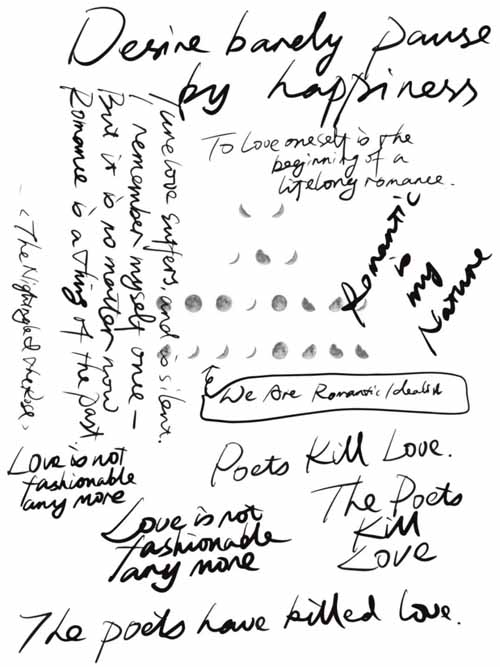 Desire barely pause
by happiness
To Love oneself is the
beginning of a
lifelong romance.
True love suffers, and is silent.
I remember myself once —
But it is no matter now
Romance is a thing of the past.
<The Nightingale & the Rose>
Romantic
is
my
Nature
We Are Romantic Idealist
Love is not
fashionable
any more
Poets Kill Love.
The Poets
Kill
Love
Love is not
fashionable
any more
The poets have killed love.